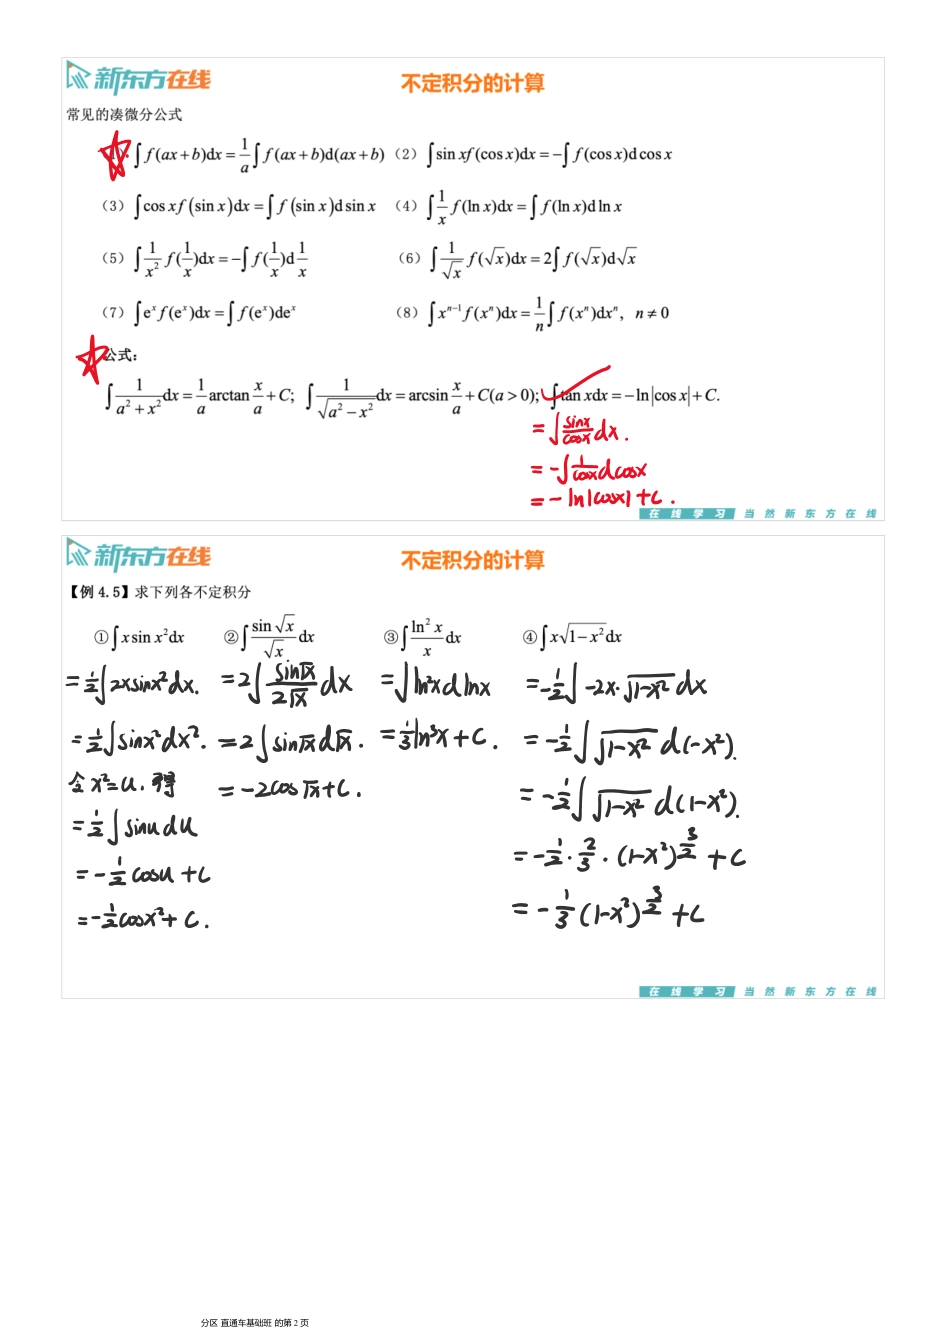 新东方在线
不定积分的计算
常见的凑微分公式
(1) ∫f(ax+b)dx = 1/a ∫f(ax+b)d(ax+b) (2) ∫sin xf(cos x)dx = −∫f(cos x)d cos x
(3) ∫cos xf(sin x)dx = ∫f(sin x)d sin x (4) ∫1/x f(ln x)dx = ∫f(ln x)d ln x
(5) ∫1/x² f(1/x)dx = −∫f(1/x)d 1/x (6) ∫1/√x f(√x)dx = 2∫f(√x)d√x
(7) ∫eˣf(eˣ)dx = ∫f(eˣ)deˣ (8) ∫xⁿ⁻¹f(xⁿ)dx = 1/n ∫f(xⁿ)dxⁿ, n ≠ 0
公式:
∫1/(a²+x²)dx = 1/a arctan x/a + C; ∫1/√(a²−x²)dx = arcsin x/a + C(a > 0); ∫tan xdx = −ln|cos x| + C.
= ∫ sinx/cosx dx.
= −∫ 1/cosx dcosx
= −ln|cosx| + C.
在线学习 当然新东方在线
新东方在线
不定积分的计算
【例 4.5】求下列各不定积分
①∫x sin x²dx ②∫sin√x/√x dx ③∫ln²x/x dx ④∫x√(1−x²)dx
= ½∫2xsinx²dx.
= ½∫sinx²dx².
令 x²=u. 得
= ½∫sinudu
= −½cosu + C
= −½cosx² + C.
= 2∫ sin√x/2√x dx
= 2∫sin√xd√x.
= −2cos√x + C.
= ∫ln²xdlnx
= ⅓ln³x + C.
= −½∫−2x·√(1−x²) dx
= −½∫√(1−x²) d(−x²).
= −½∫√(1−x²) d(1−x²).
= −½·⅔·(1−x²)^(3/2) + C
= −⅓(1−x²)^(3/2) + C
在线学习 当然新东方在线
分区 直通车基础班 的第 2 页